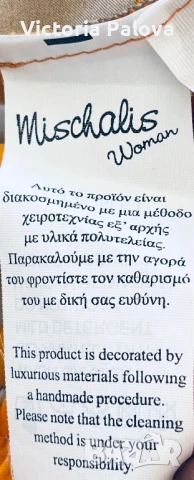 Mischalis
Woman
Αυτό το προϊόν είναι
διακοσμημένο με μια μέθοδο
χειροτεχνίας εξ' αρχής
με υλικά πολυτελείας.
Παρακαλούμε με την αγορά
του φροντίστε τον καθαρισμό
του με δική σας ευθύνη.
This product is decorated by
luxurious materials following
a handmade procedure.
Please note that the cleaning
method is under your
responsibility.